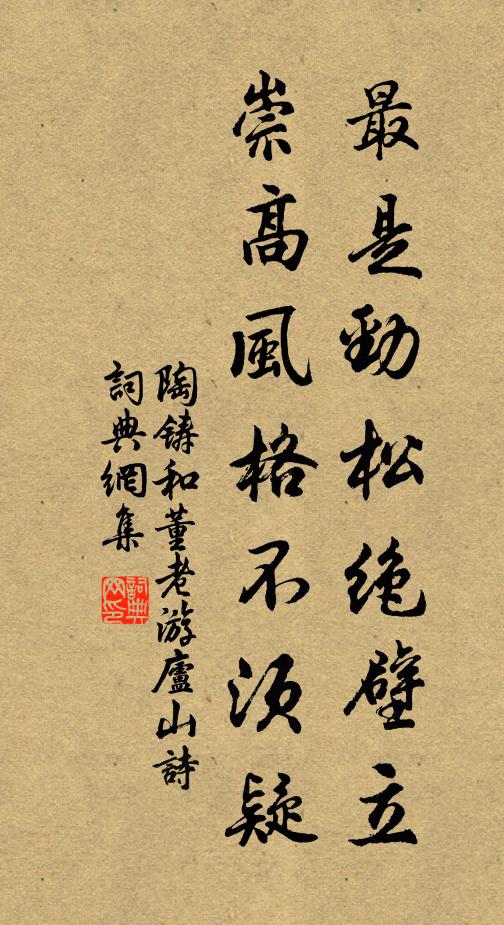 最是勁松絶壁立
崇高風格不須疑
陶鑄和董老游廬山詩
詞典網集
詞典
网印